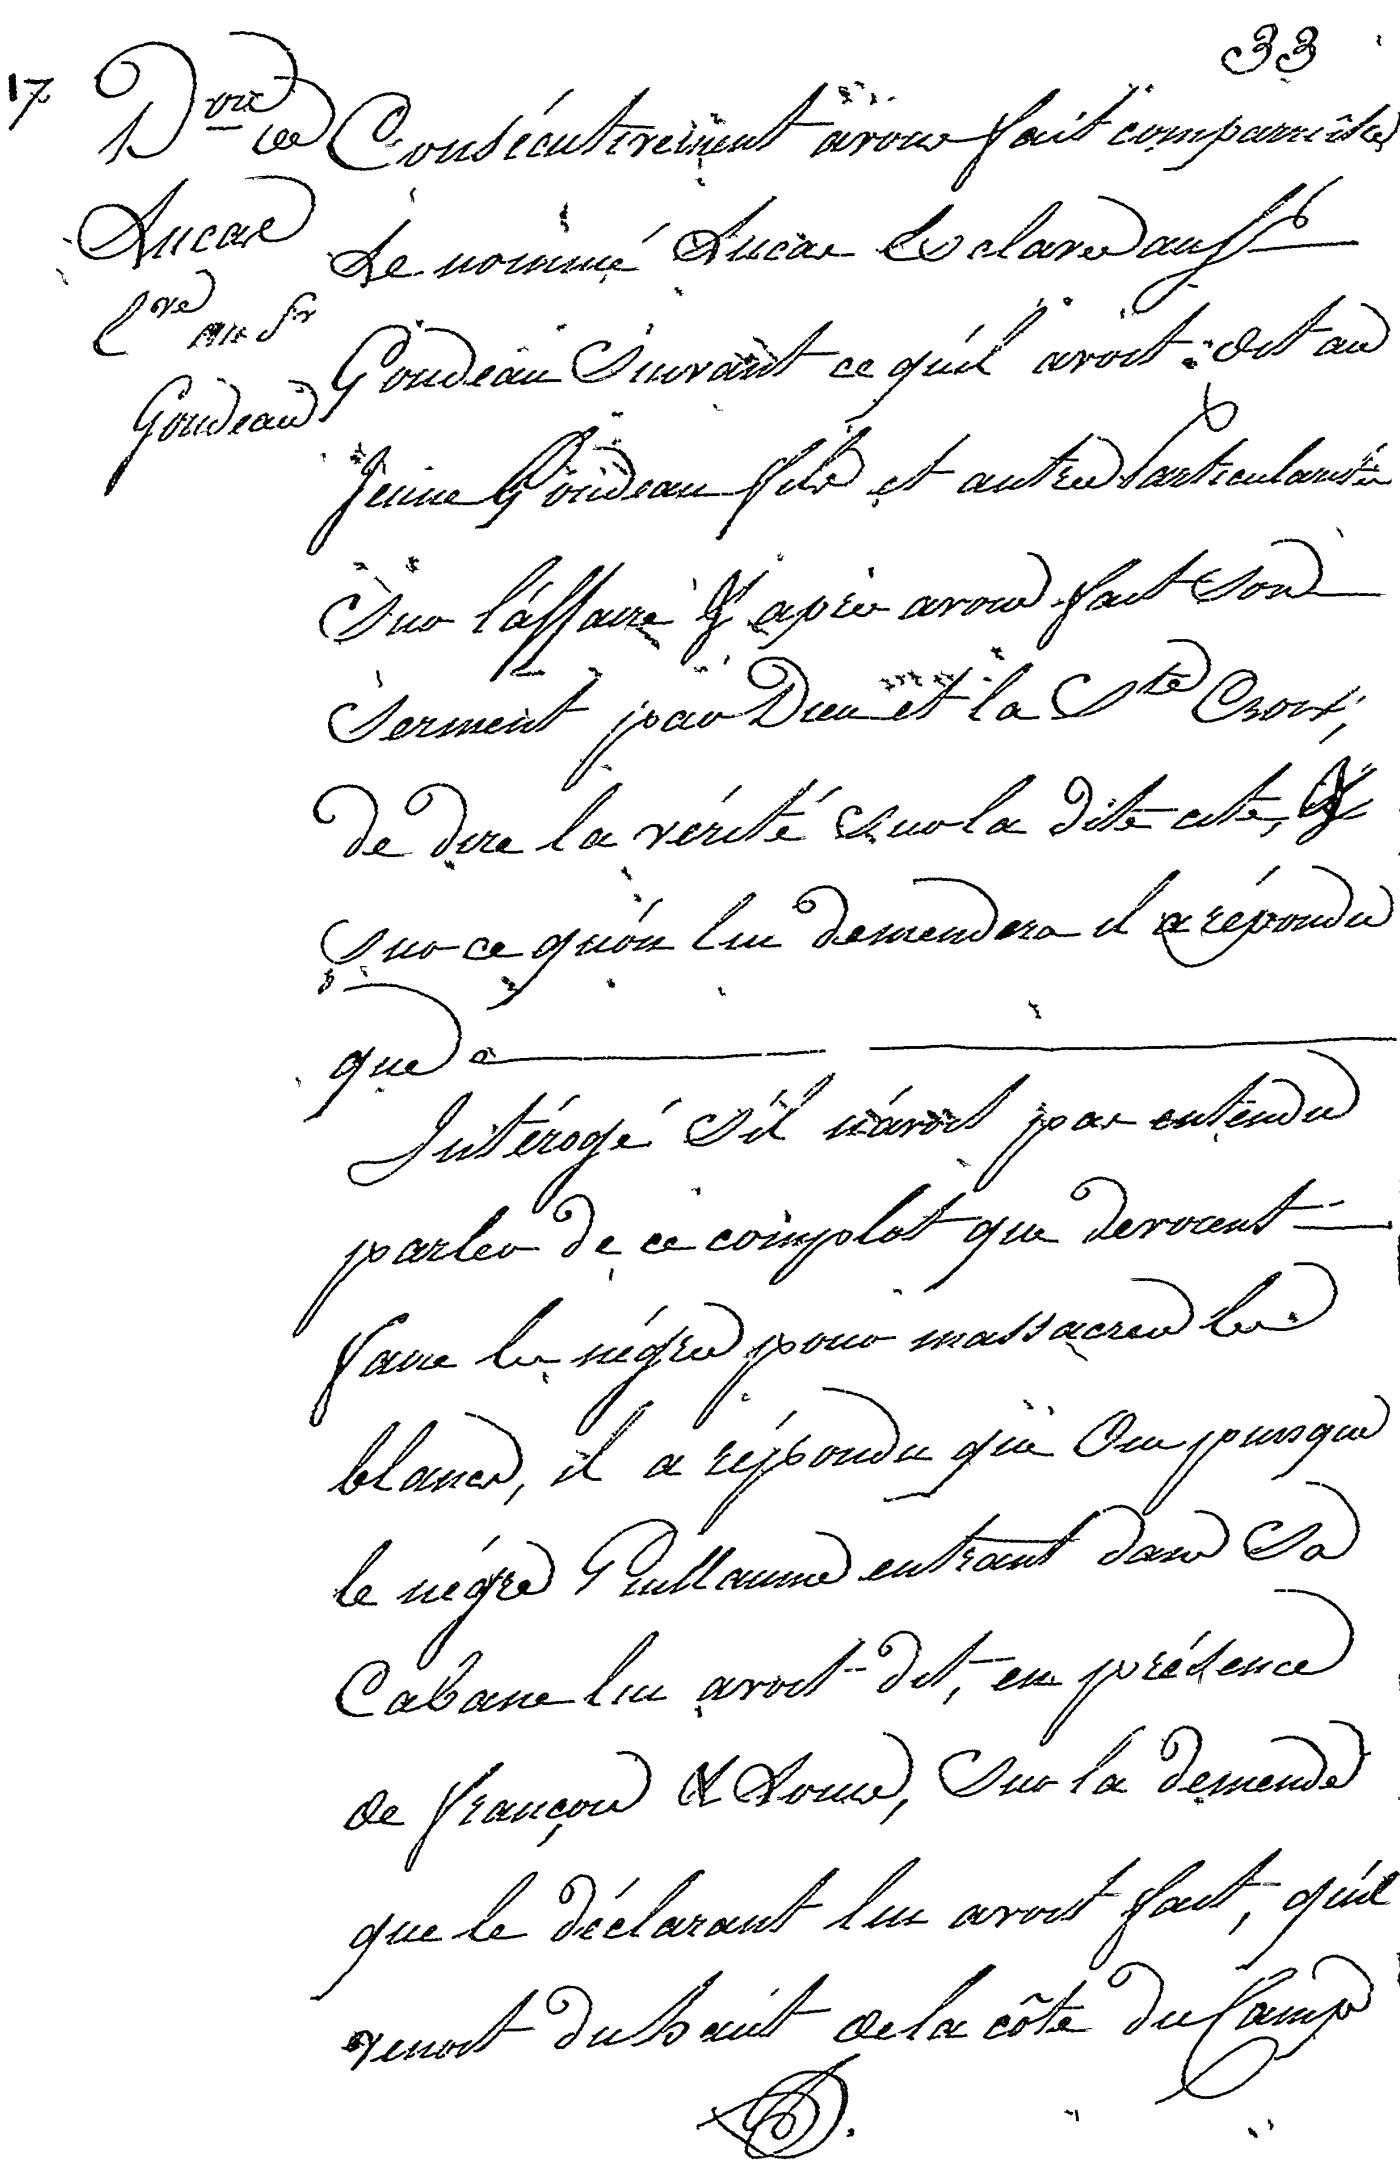 33
17
D.on de
Lucas
Eve au Sr
Goudeau
Consécutivement avons fait comparaître
Le nommé Lucas Esclave au Sr
Goudeau Suivant ce qu'il avoit dit au
Jeune Goudeau fils et autres Particularités
Sur l'affaire & après avoir fait Son
Serment par Dieu et la Ste Croix,
de dire la vérité Sur la dite cite, &
Sur ce qu'on lui demendera il a répondu
que
Intérogé S'il n'avoit pas entendu
parler de ce complot que devoient
faire les négres pour massacrer les
blancs, il a répondu que Oui puisque
le négre Guillaume entrant dans Sa
Cabane lui avoit dit, en présence
de françois & Louis, Sur la demende
que le déclarant lui avoit fait, qu'il
venoit du haut de la côte du Camp